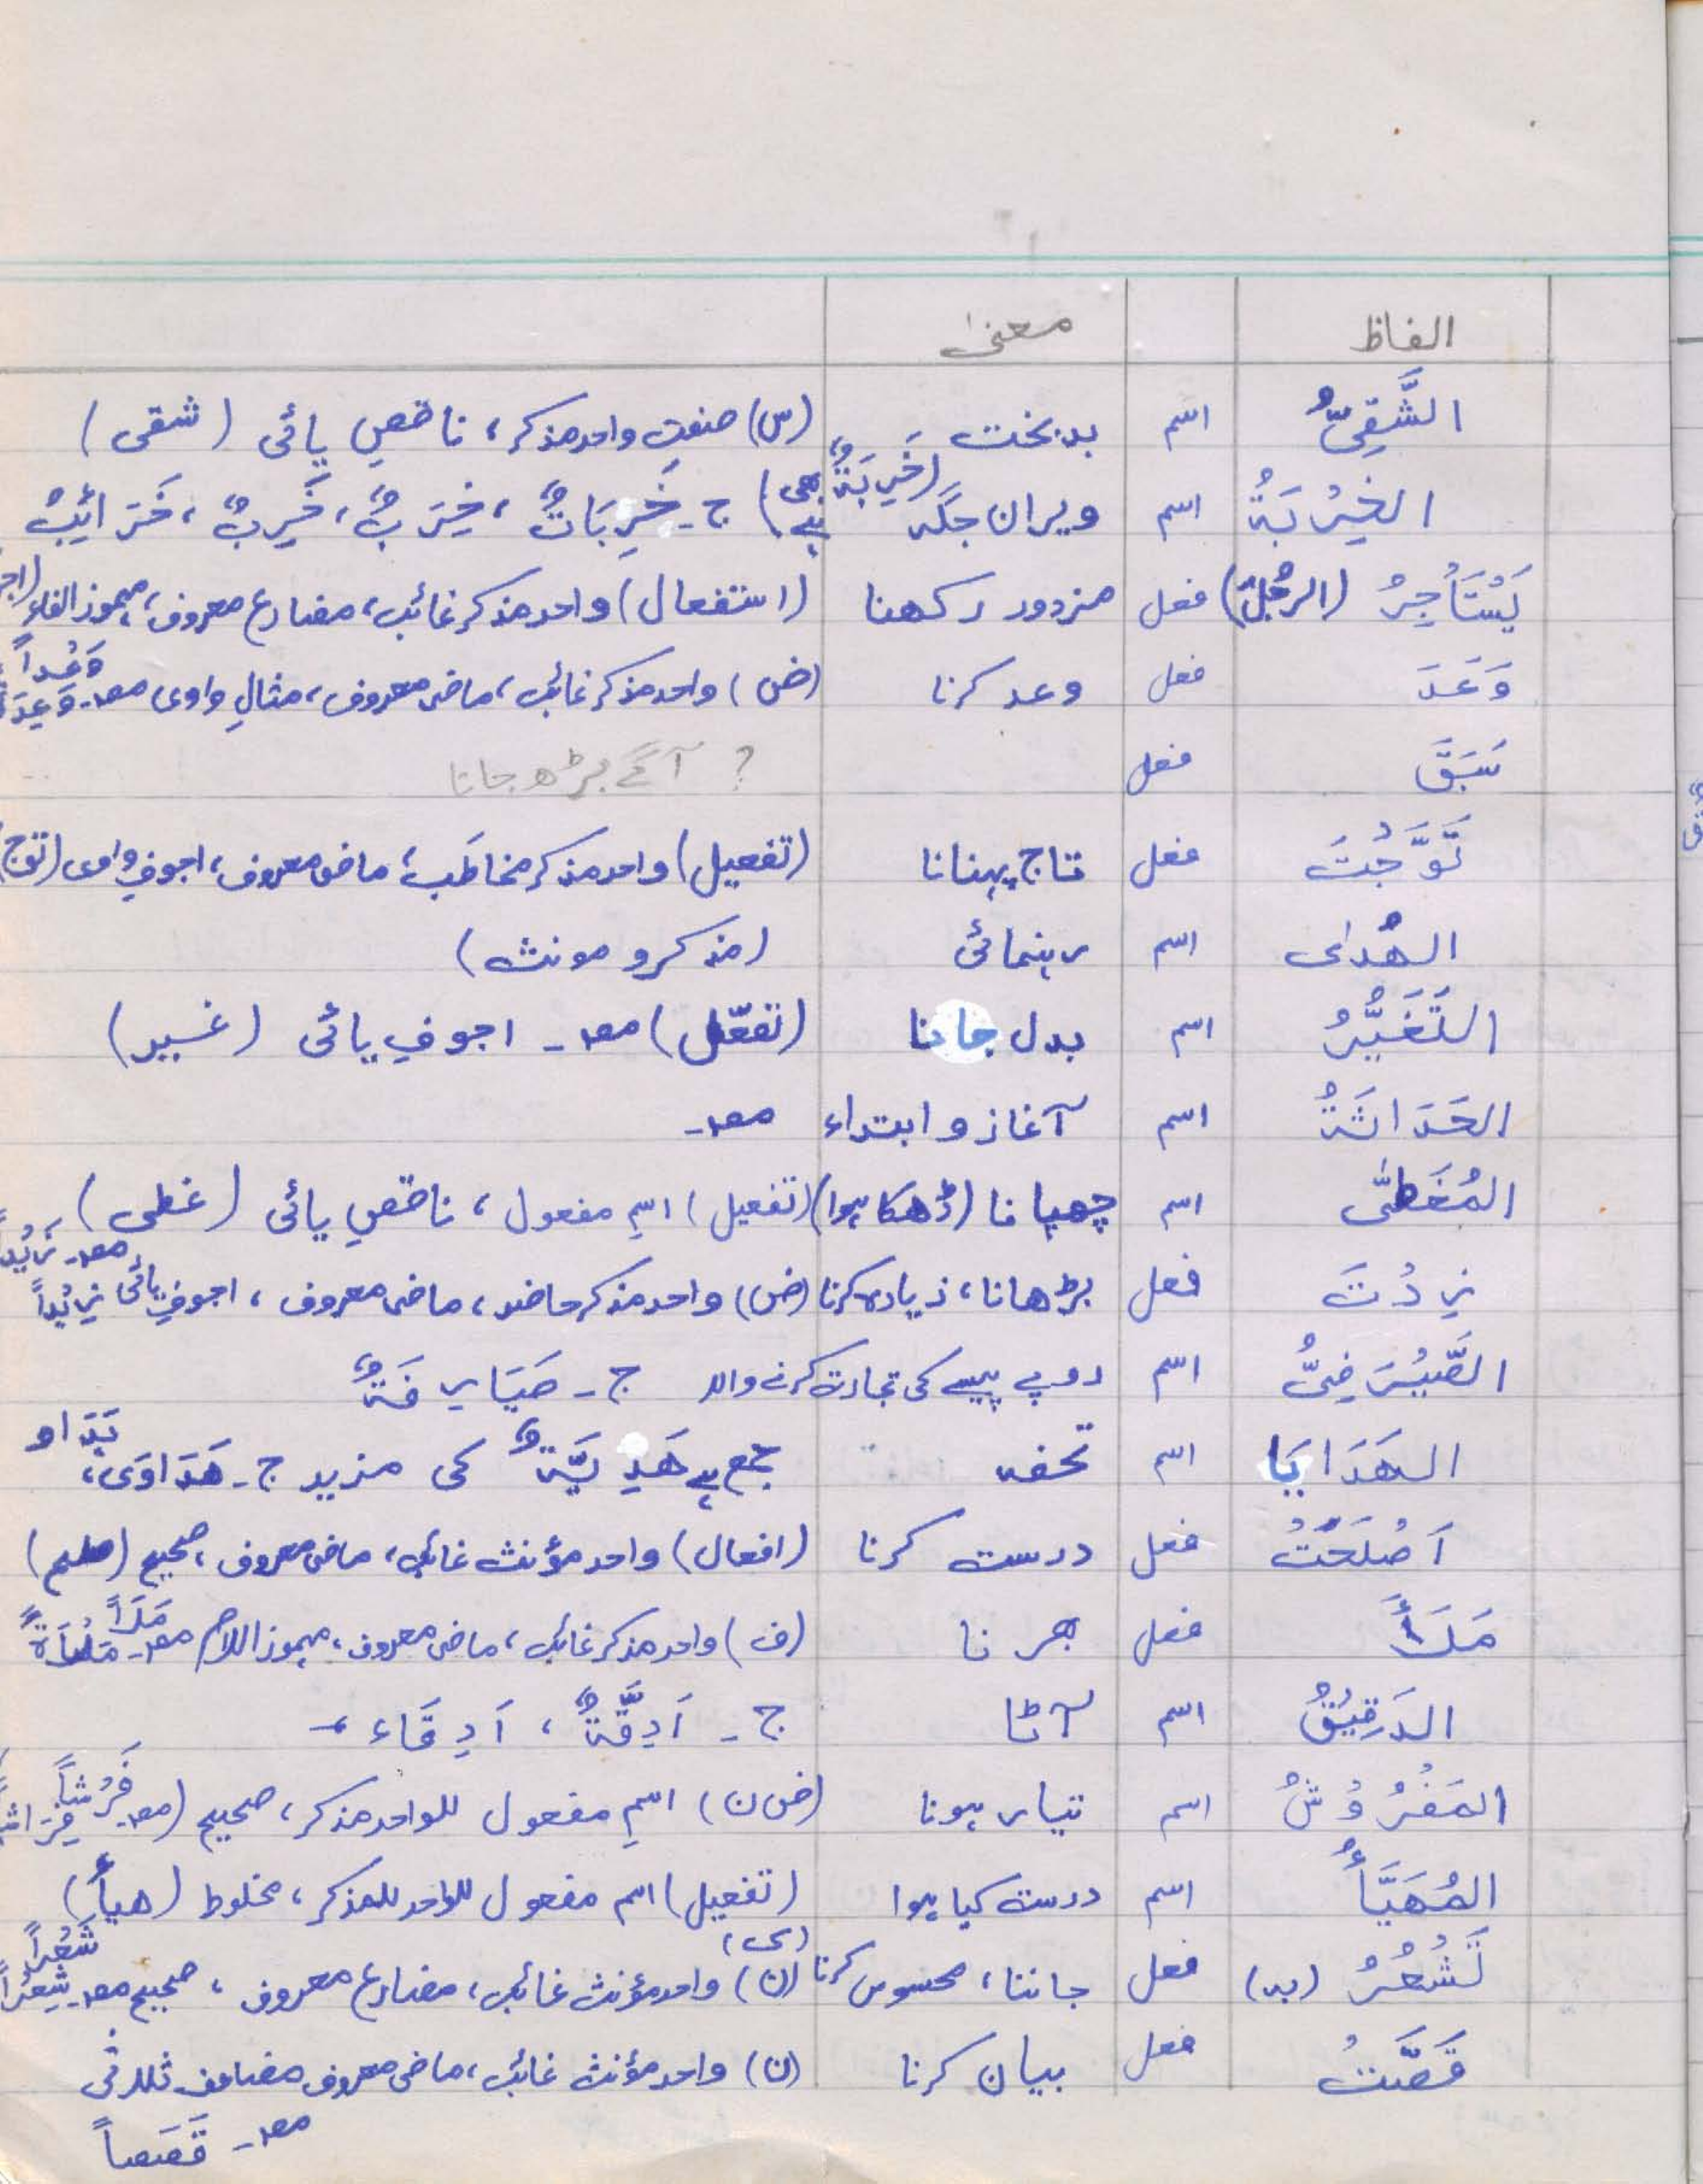 الفاظ معنی
الشَّقِیُّ اسم بدبخت (س) صفتِ واحد مذکر، ناقصِ یائی (شقی)
الخِرْبَةُ اسم ویران جگہ (خَرِبَةٌ بھی ہے) ج۔ خَرِبَاتٌ، خِرَبٌ، خَرِبٌ، خَرَائِبُ
یَسْتَأْجِرُ (الرجُلَ) فعل مزدور رکھنا (استفعال) واحد مذکر غائب، مضارع معروف، مہموز الفاء (اجر
وَعَدَ فعل وعد کرنا (ض) واحد مذکر غائب، ماضی معروف، مثالِ واوی مصد۔ وَعْداً
سَبَقَ فعل ? آگے بڑھ جانا
تَوَّجْتَ فعل تاج پہنانا (تفعیل) واحد مذکر مخاطَب، ماضی معروف، اجوفِ واوی (توج)
الھُدٰی اسم رہنمائی (مذکر و مونث)
التَغَیُّرُ اسم بدل جانا (تفعّل) مصد۔ اجوفِ یائی (غییر)
الحَدَاثَةُ اسم آغاز و ابتداء مصد۔
المُغَطّٰی اسم چھپانا (ڈھکا ہوا) (تفعیل) اسمِ مفعول، ناقصِ یائی (غطی)
زِدْتَ فعل بڑھانا، زیادہ کرنا (ض) واحد مذکر حاضر، ماضی معروف، اجوفِ یائی مصد۔ زَیْداً زِیْداً
الصَّیْرَفِیُّ اسم روپے پیسے کی تجارت کرنے والا ج۔ صَیَارِفَةٌ
الھَدَایَا اسم تحفہ جمع ہے ھَدِیَّةٌ کی مزید ج۔ ھَدَاوَی،
اَصْلَحَتْ فعل درست کرنا (افعال) واحد مؤنث غائب، ماضی معروف، صحیح (صلح)
مَلَأَ فعل بھرنا (ف) واحد مذکر غائب، ماضی معروف، مہموز اللام مصد۔ مَلَأً
الدَقِیْقُ اسم آٹا ج۔ اَدِقَّةٌ، اَدِقَاء
المَفْرُوْشُ اسم تیار ہونا (ض ن) اسمِ مفعول للواحد مذکر، صحیح (مصد۔ فَرْشاً
المُھَیَّأُ اسم درست کیا ہوا (تفعیل) اسم مفعول للواحد للمذکر، مخلوط (ھیأ)
تَشْعُرُ (بہ) فعل جاننا، محسوس کرنا (ن) (ک) واحد مؤنث غائب، مضارع معروف، صحیح مصد۔ شَعْراً شِعْراً
قَصَّتْ فعل بیان کرنا (ن) واحد مؤنث غائب، ماضی معروف مضاعف ثلاثی
مصد۔ قَصَصاً